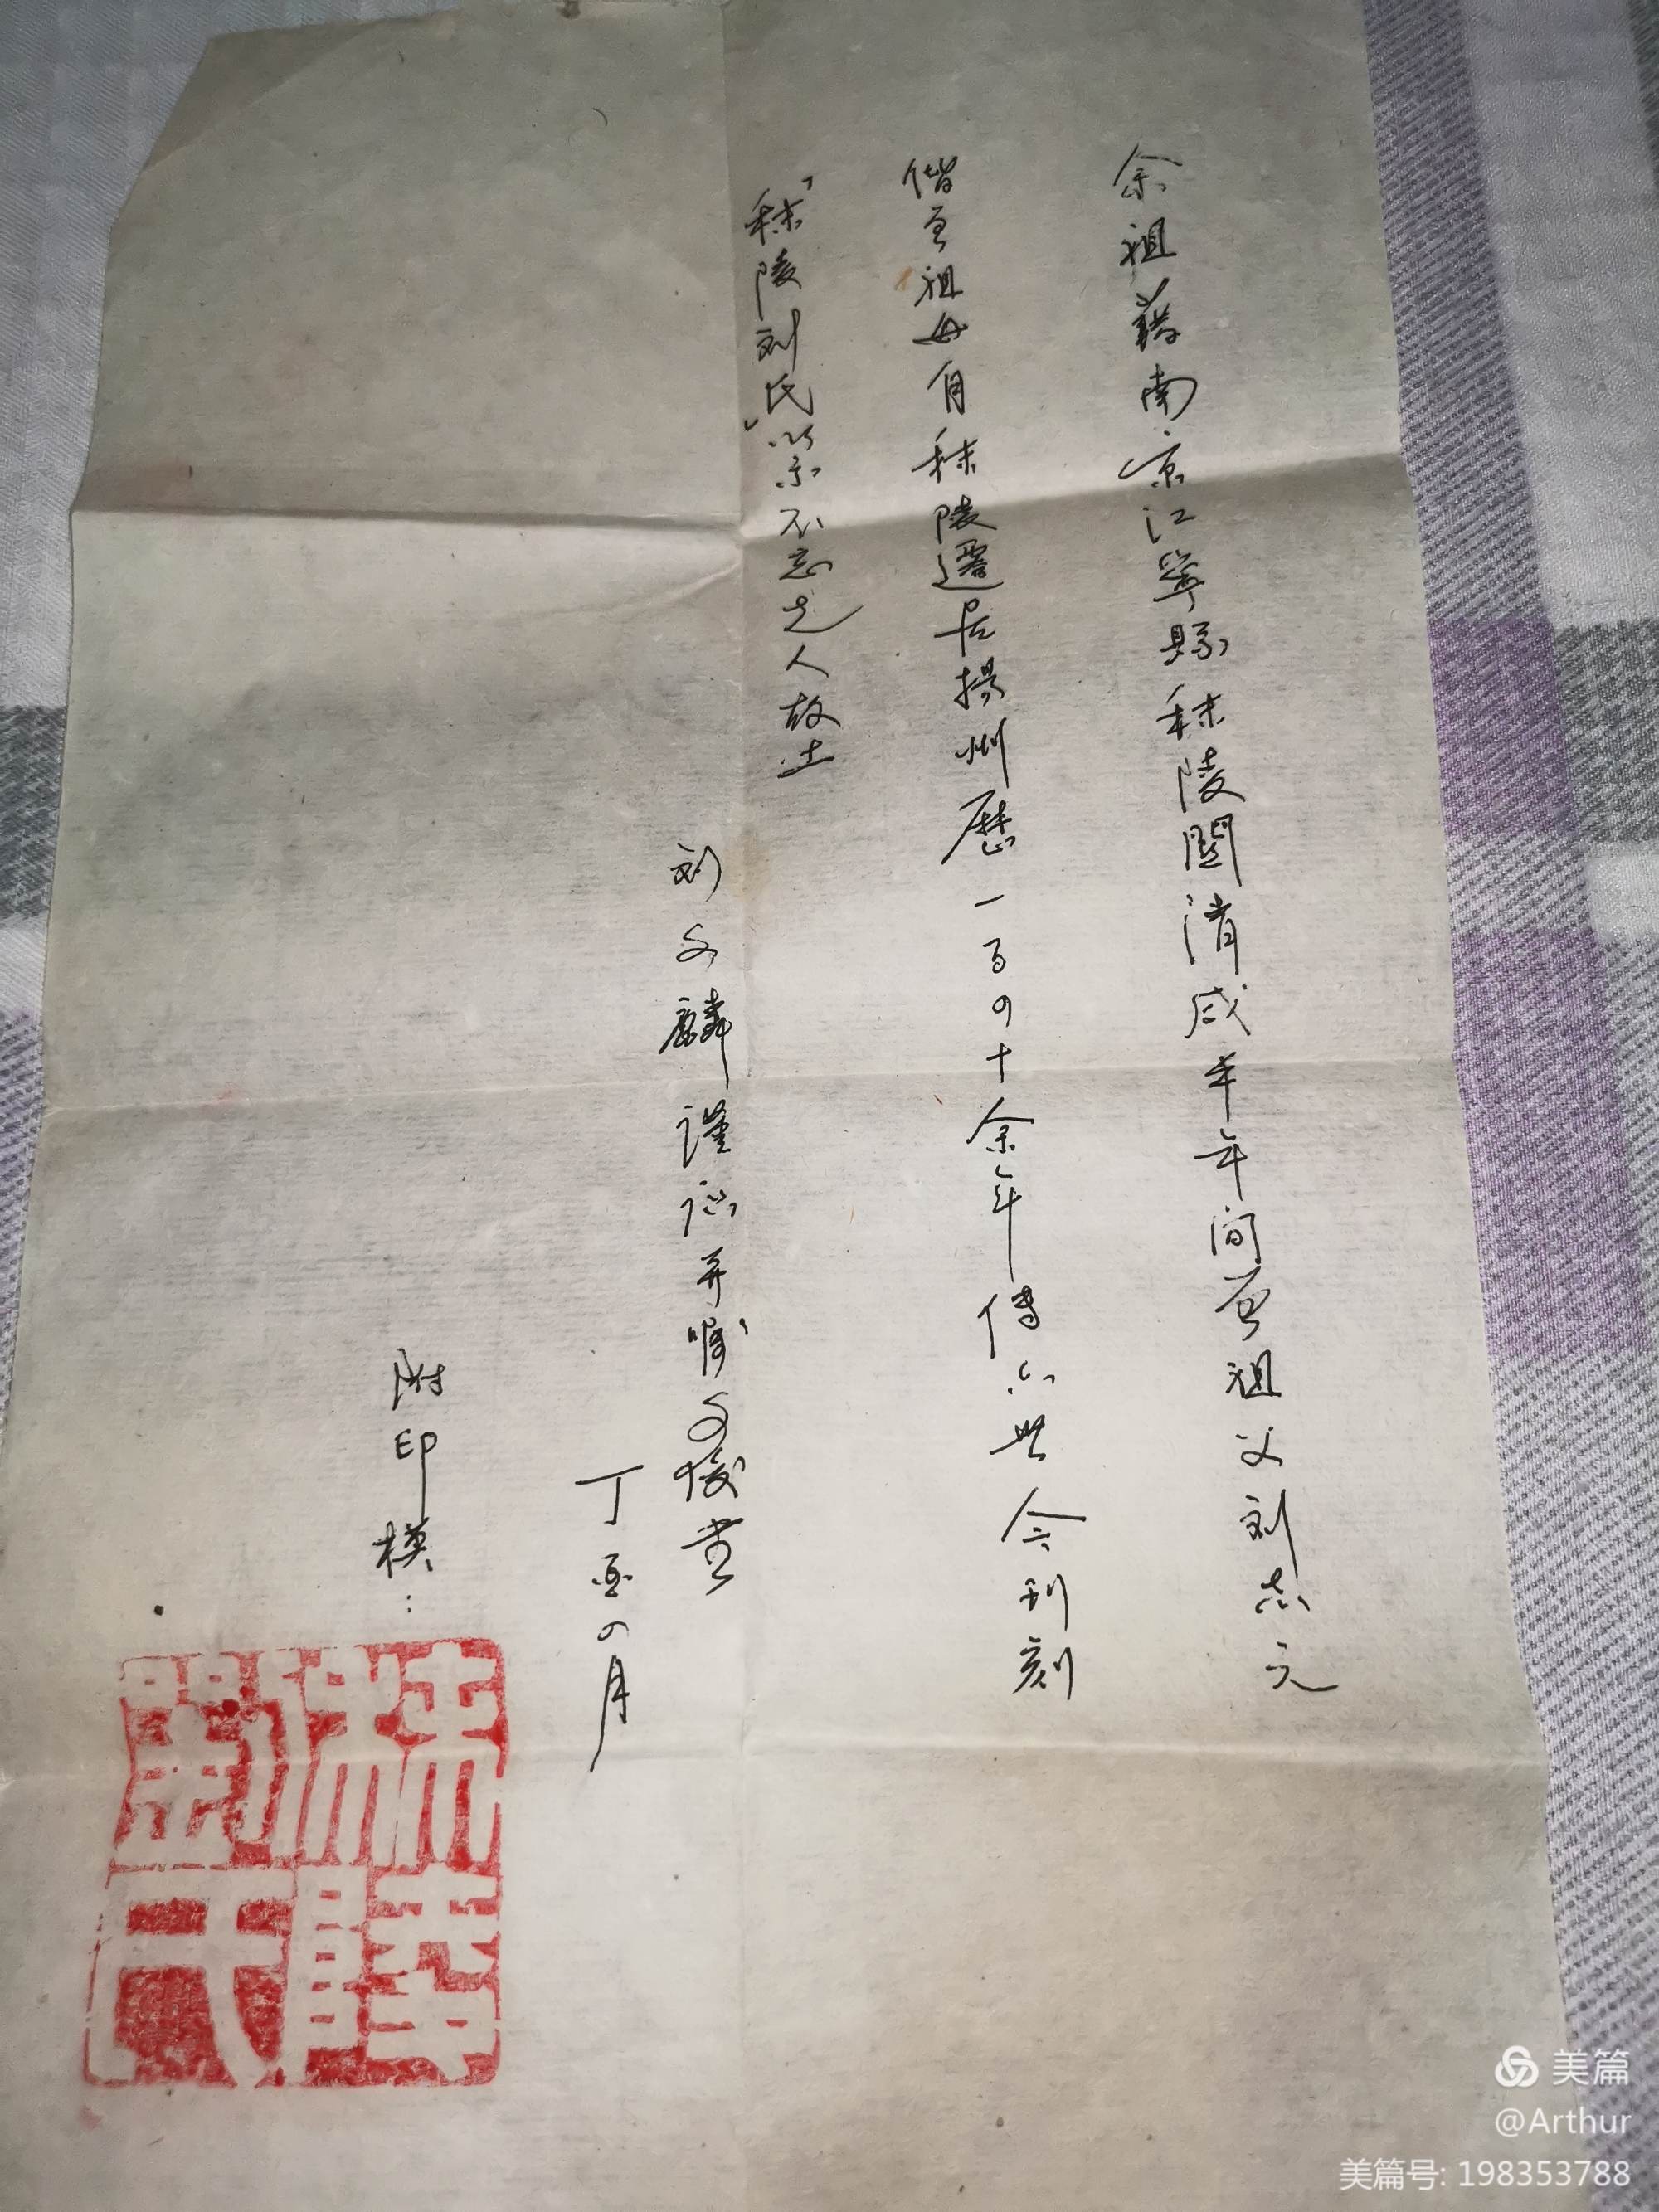 余祖藉南京江寧縣秣陵關清咸丰年间高祖父刘志元
偕高祖母自秣陵遷居揚州歷一百四十余年傳六世今刊刻
「秣陵刘氏」以示不忘先人故土
刘文麟謹记并嘱文俊書
丁酉四月
附印模：
秣陵
劉氏
美篇
@Arthur
美篇号: 198353788